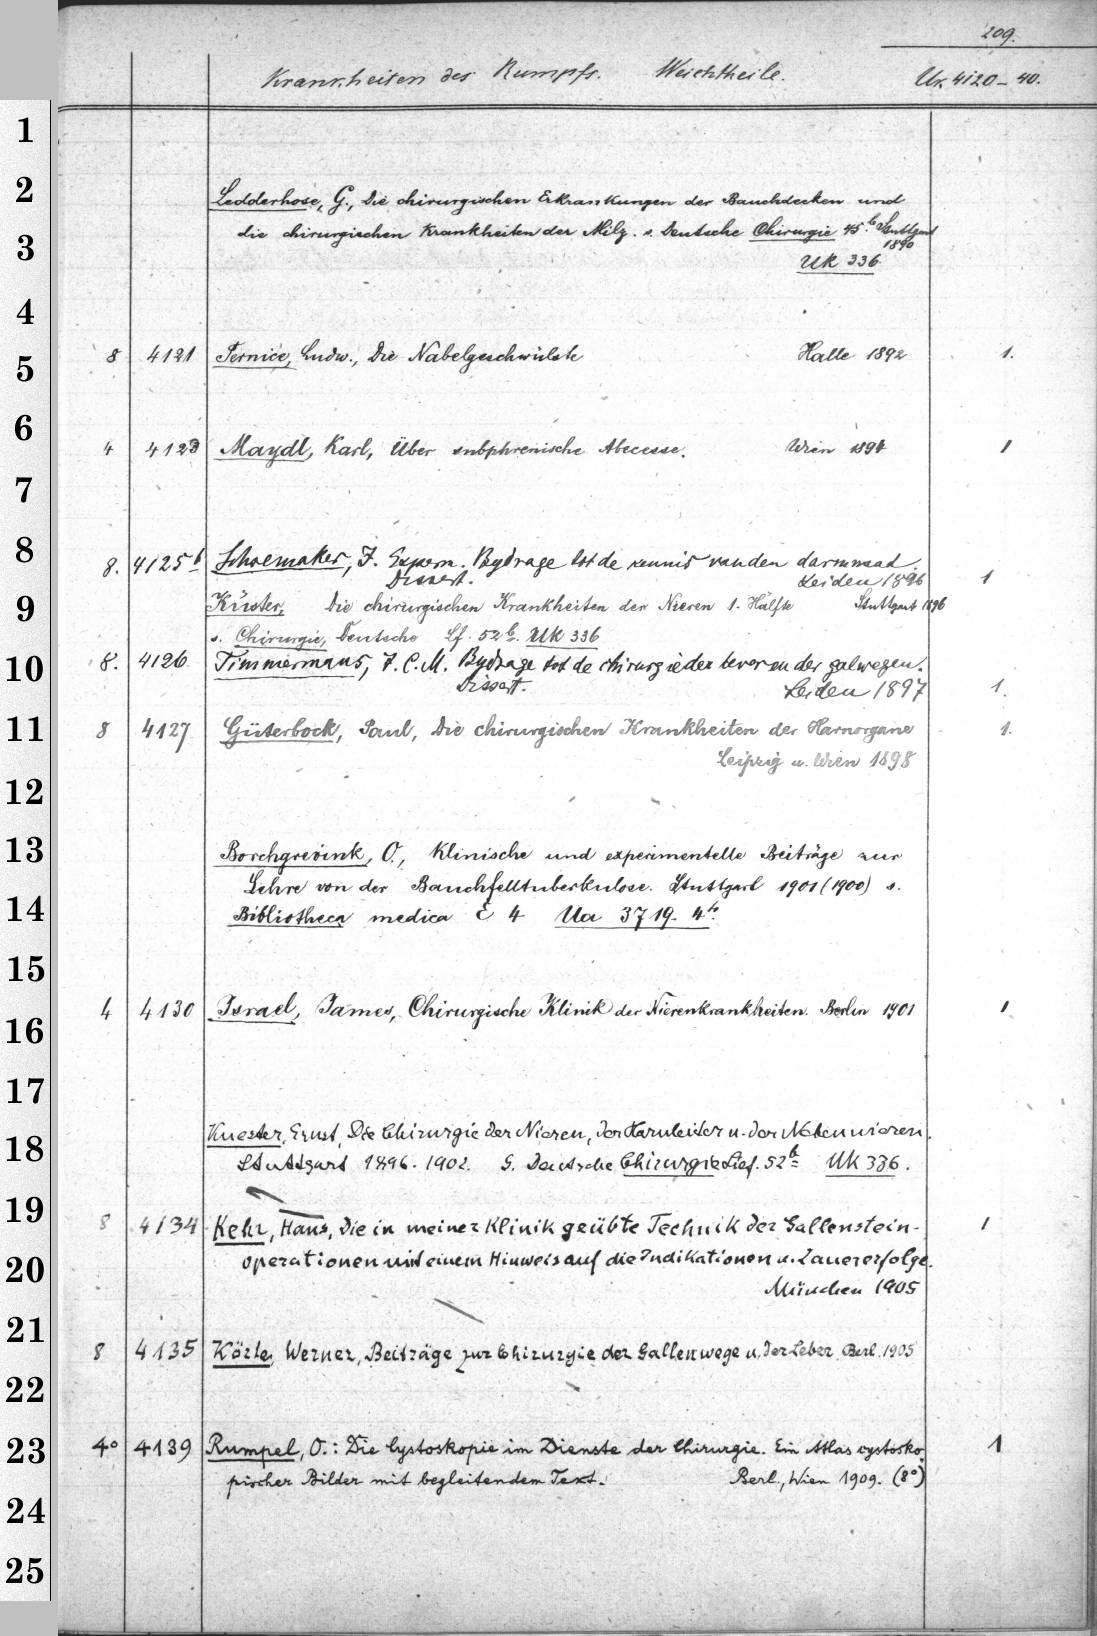 209.
Krankheiten des Rumpfs. Weichtheile. Uk. 4120-40.
1
2
Ledderhose, G., Die chirurgischen Erkrankungen der Bauchdecken und
3
die chirurgischen Krankheiten der Milz. s. Deutsche Chirurgie 45.b Stuttgart
1890
Uk 336
4
5
8 4121 Pernice, Ludw., Die Nabelgeschwülste Halle 1892 1.
6
4 4123 Maydl, Karl, Über subphrenische Abscesse. Wien 1894 1
7
8
8. 4125b Schoemaker, J. Experm. Bydrage tot de kennis van den darmnaad.
Dissert. Leiden 1896 1
9
Küster, Die chirurgischen Krankheiten der Nieren 1. Hälfte Stuttgart 1896
s. Chirurgie, Deutsche Lf. 52b. Uk 336
10
8. 4126 Timmermans, F. C. M. Bydrage tot de chirurgie der lever en der galwegen.
Dissert. Leiden 1897 1.
11
8 4127 Güterbock, Paul, Die chirurgischen Krankheiten der Harnorgane 1.
Leipzig u. Wien 1898
12
13
Borchgrevink, O., Klinische und experimentelle Beiträge zur
Lehre von der Bauchfelltuberkulose. Stuttgart 1901 (1900) s.
14
Bibliotheca medica E 4 Ua 3719. 4°.
15
16
4 4130 Israel, James, Chirurgische Klinik der Nierenkrankheiten. Berlin 1901 1
17
18
Kuester, Ernst, Die Chirurgie der Nieren, der Harnleiter u. der Nebennieren.
Stuttgart 1896-1902. S. Deutsche Chirurgie Lief. 52b Uk 336.
19
8 4134 Kehr, Hans, Die in meiner Klinik geübte Technik der Gallenstein-
20
operationen mit einem Hinweis auf die Indikationen u. Dauererfolge.
München 1905 1
21
8 4135 Körte, Werner, Beiträge zur Chirurgie der Gallenwege u. der Leber. Berl. 1905
22
23
4° 4139 Rumpel, O.: Die Cystoskopie im Dienste der Chirurgie. Ein Atlas cystosko- 1
pischer Bilder mit begleitendem Text. Berl., Wien 1909. (8°)
24
25